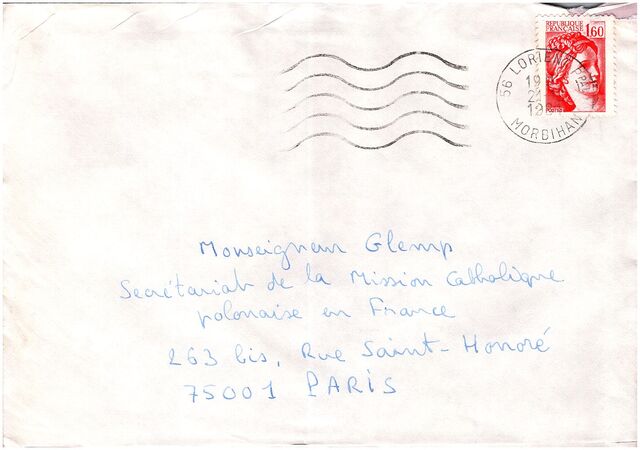 REPUBLIQUE
FRANÇAISE 1,60
56 LORIENT PPAL
19
21
12
MORBIHAN
Monseigneur Glemp
Secrétariat de la Mission Catholique
polonaise en France
263 bis, Rue Saint-Honoré
75001 PARIS